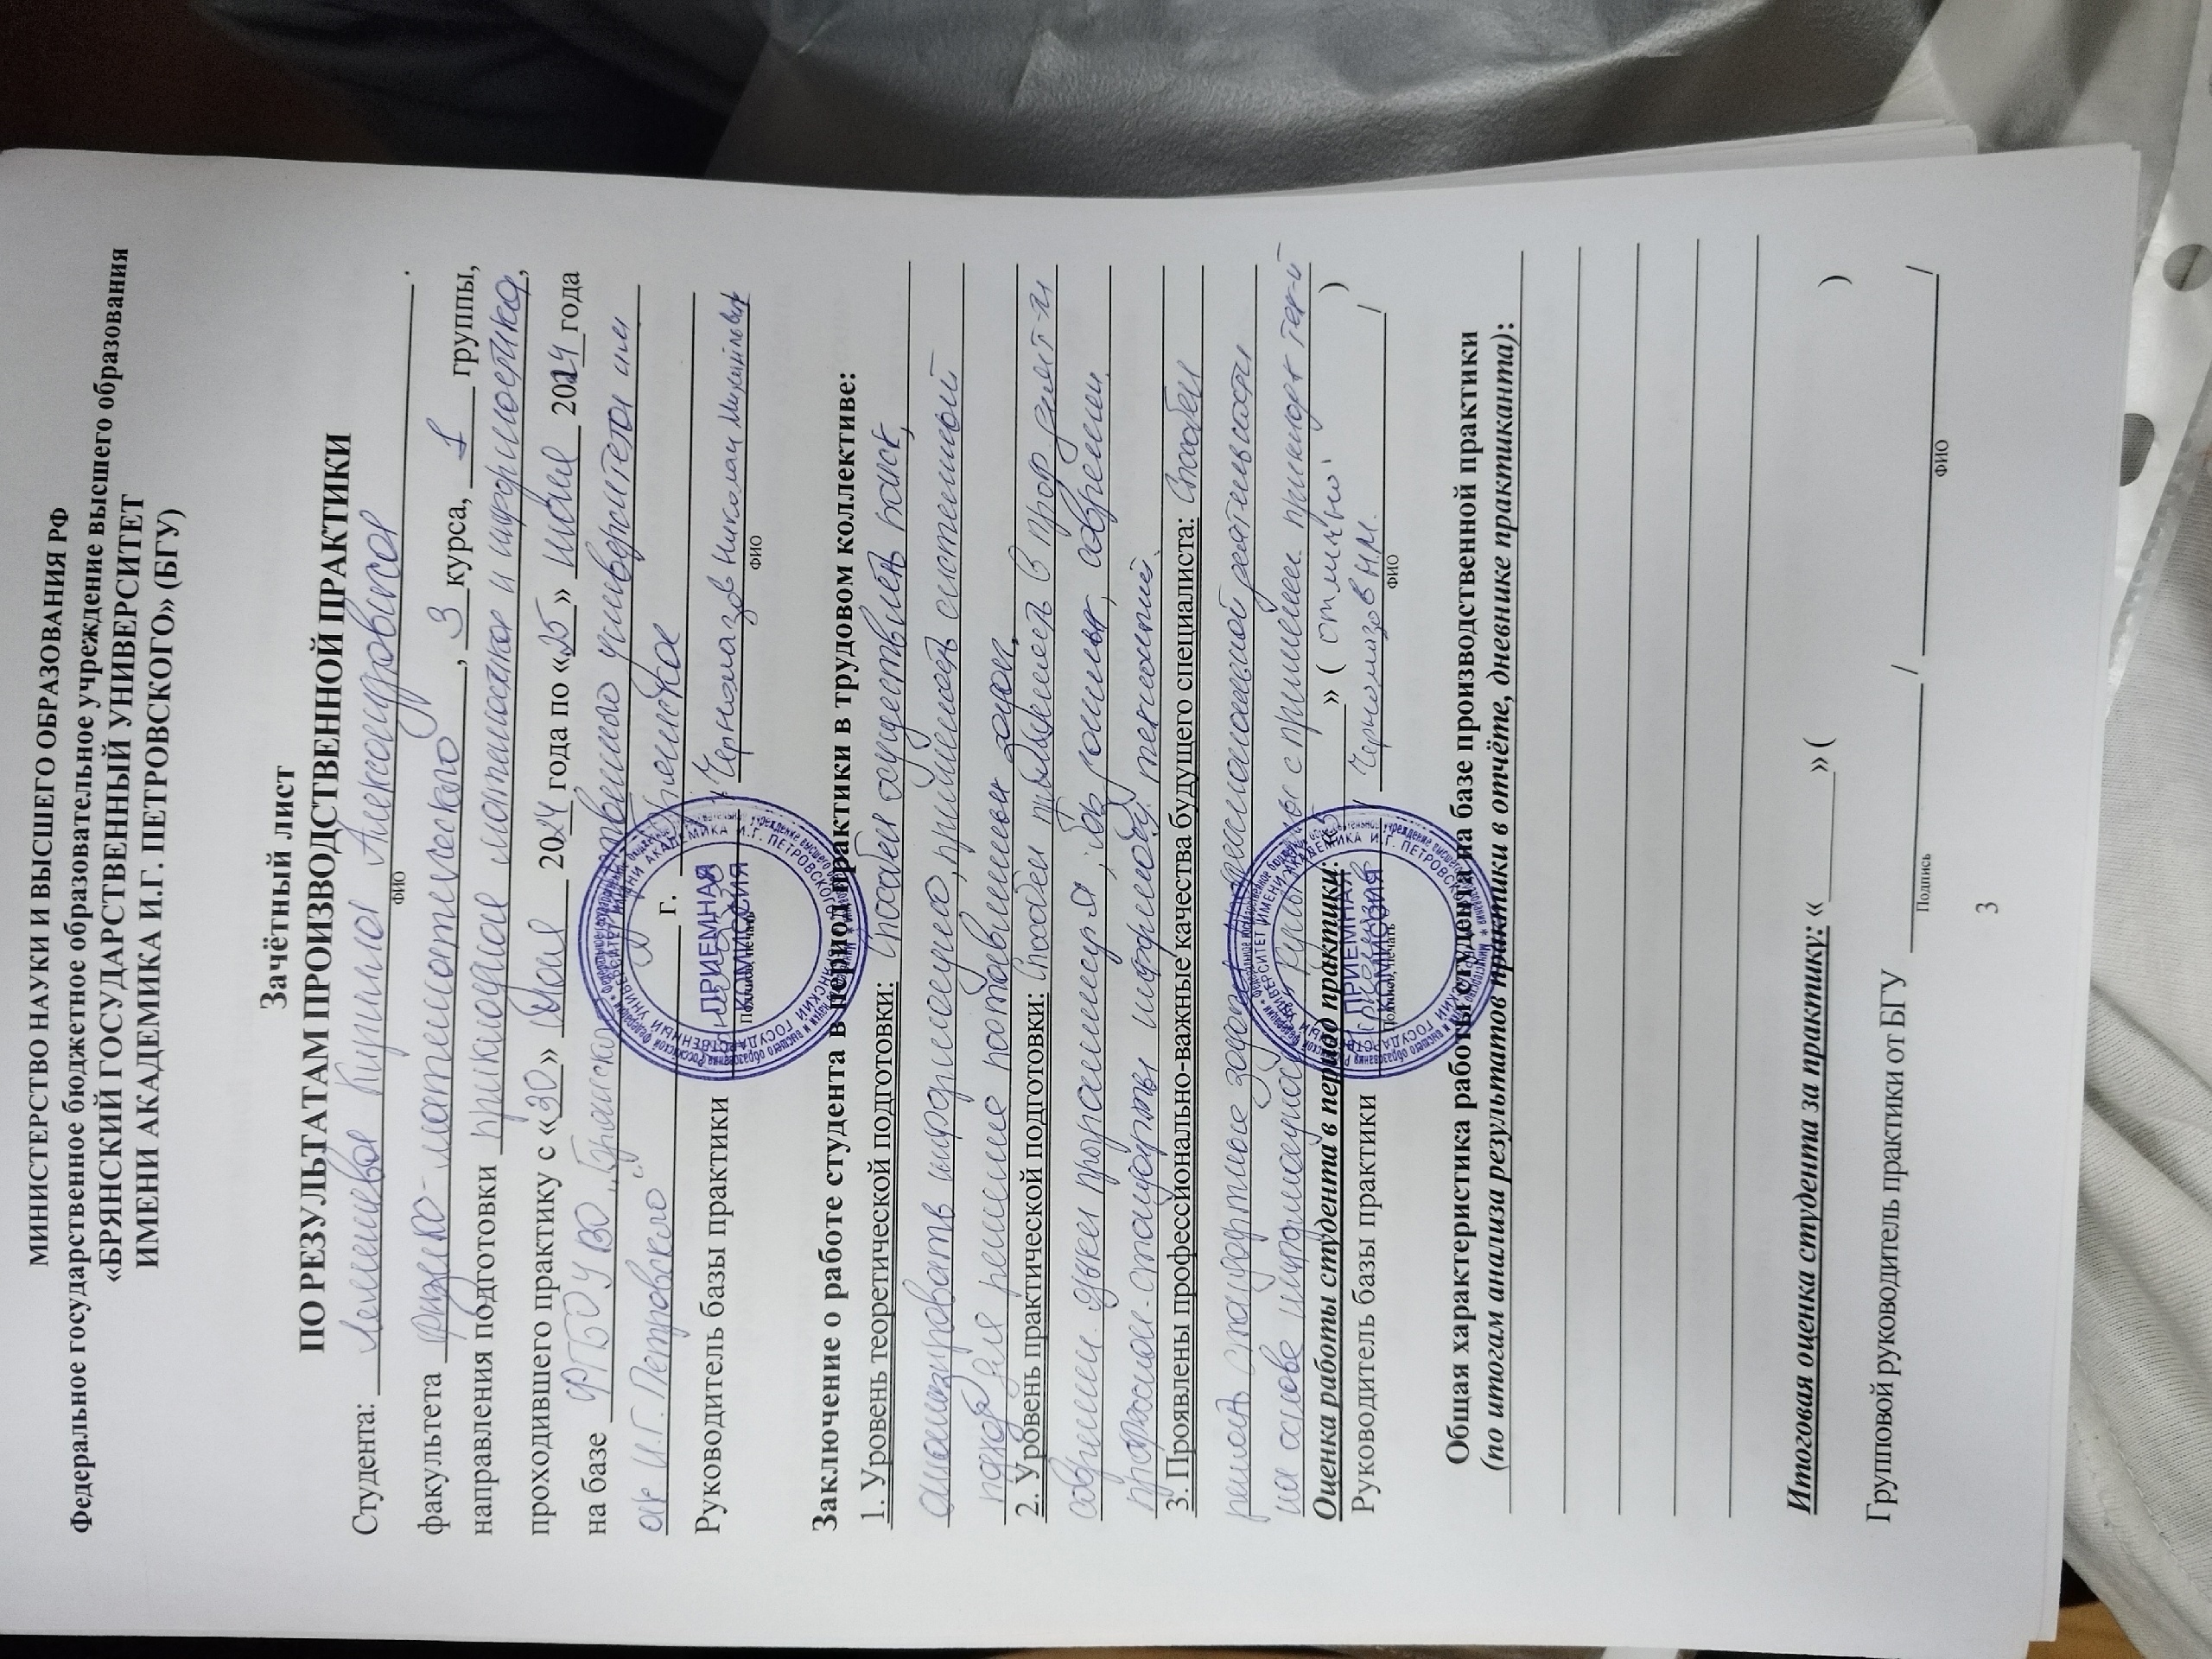 МИНИСТЕРСТВО НАУКИ И ВЫСШЕГО ОБРАЗОВАНИЯ РФ
Федеральное государственное бюджетное образовательное учреждение высшего образования
«БРЯНСКИЙ ГОСУДАРСТВЕННЫЙ УНИВЕРСИТЕТ
ИМЕНИ АКАДЕМИКА И.Г. ПЕТРОВСКОГО» (БГУ)
Зачётный лист
ПО РЕЗУЛЬТАТАМ ПРОИЗВОДСТВЕННОЙ ПРАКТИКИ
Студента: Лемешева Кирилла Александровича .
ФИО
факультета физико-математического, 3 курса, 1 группы,
направления подготовки прикладная математика и информатика,
проходившего практику с «30» 2024 года по «25» июля 2024 года
на базе ФГБОУ ВО „Брянского государственного университета им
ак И.Г. Петровского“ г. Брянска
Руководитель базы практики / Черномазов Николай Михайлович
Подпись, печать ФИО
ПРИЕМНАЯ
КОМИССИЯ
Заключение о работе студента в период практики в трудовом коллективе:
1. Уровень теоретической подготовки: Способен осуществлять поиск,
анализировать информацию, применять системный
подход для решения поставленных задач.
2. Уровень практической подготовки: Способен применять в проф. деят-ти
соврем. языки ; баз данных, соврем.
професион. стандарты технологий.
3. Проявлены профессионально-важные качества будущего специалиста: Способен
решать стандартные задачи профессиональной деятельности
на основе культуры с применен. приклад тех-й
Оценка работы студента в период практики: «5» ( отлично )
Руководитель базы практики Черномазов / Черномазов Н.М. /
Подпись, печать ФИО
ПРИЕМНАЯ
КОМИССИЯ
Общая характеристика работы студента на базе производственной практики
(по итогам анализа результатов практики в отчёте, дневнике практиканта):
Итоговая оценка студента за практику: «________» ( )
Групповой руководитель практики от БГУ / /
Подпись ФИО
3